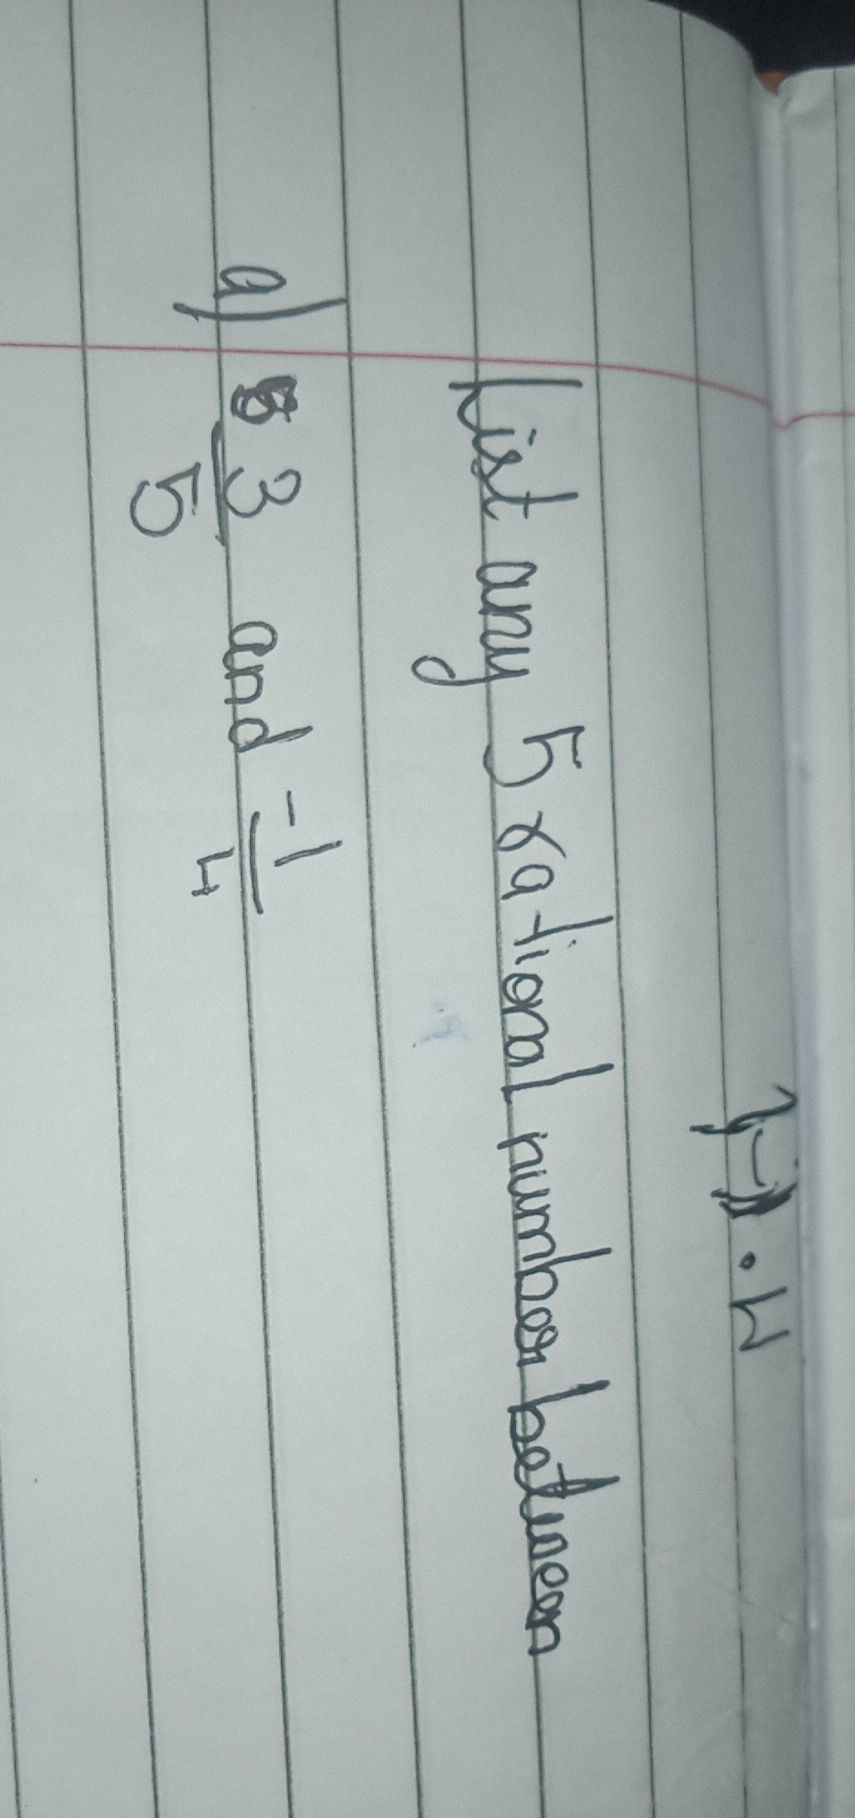 H.W
List any 5 rational number between
a) 3/5 and -1/4